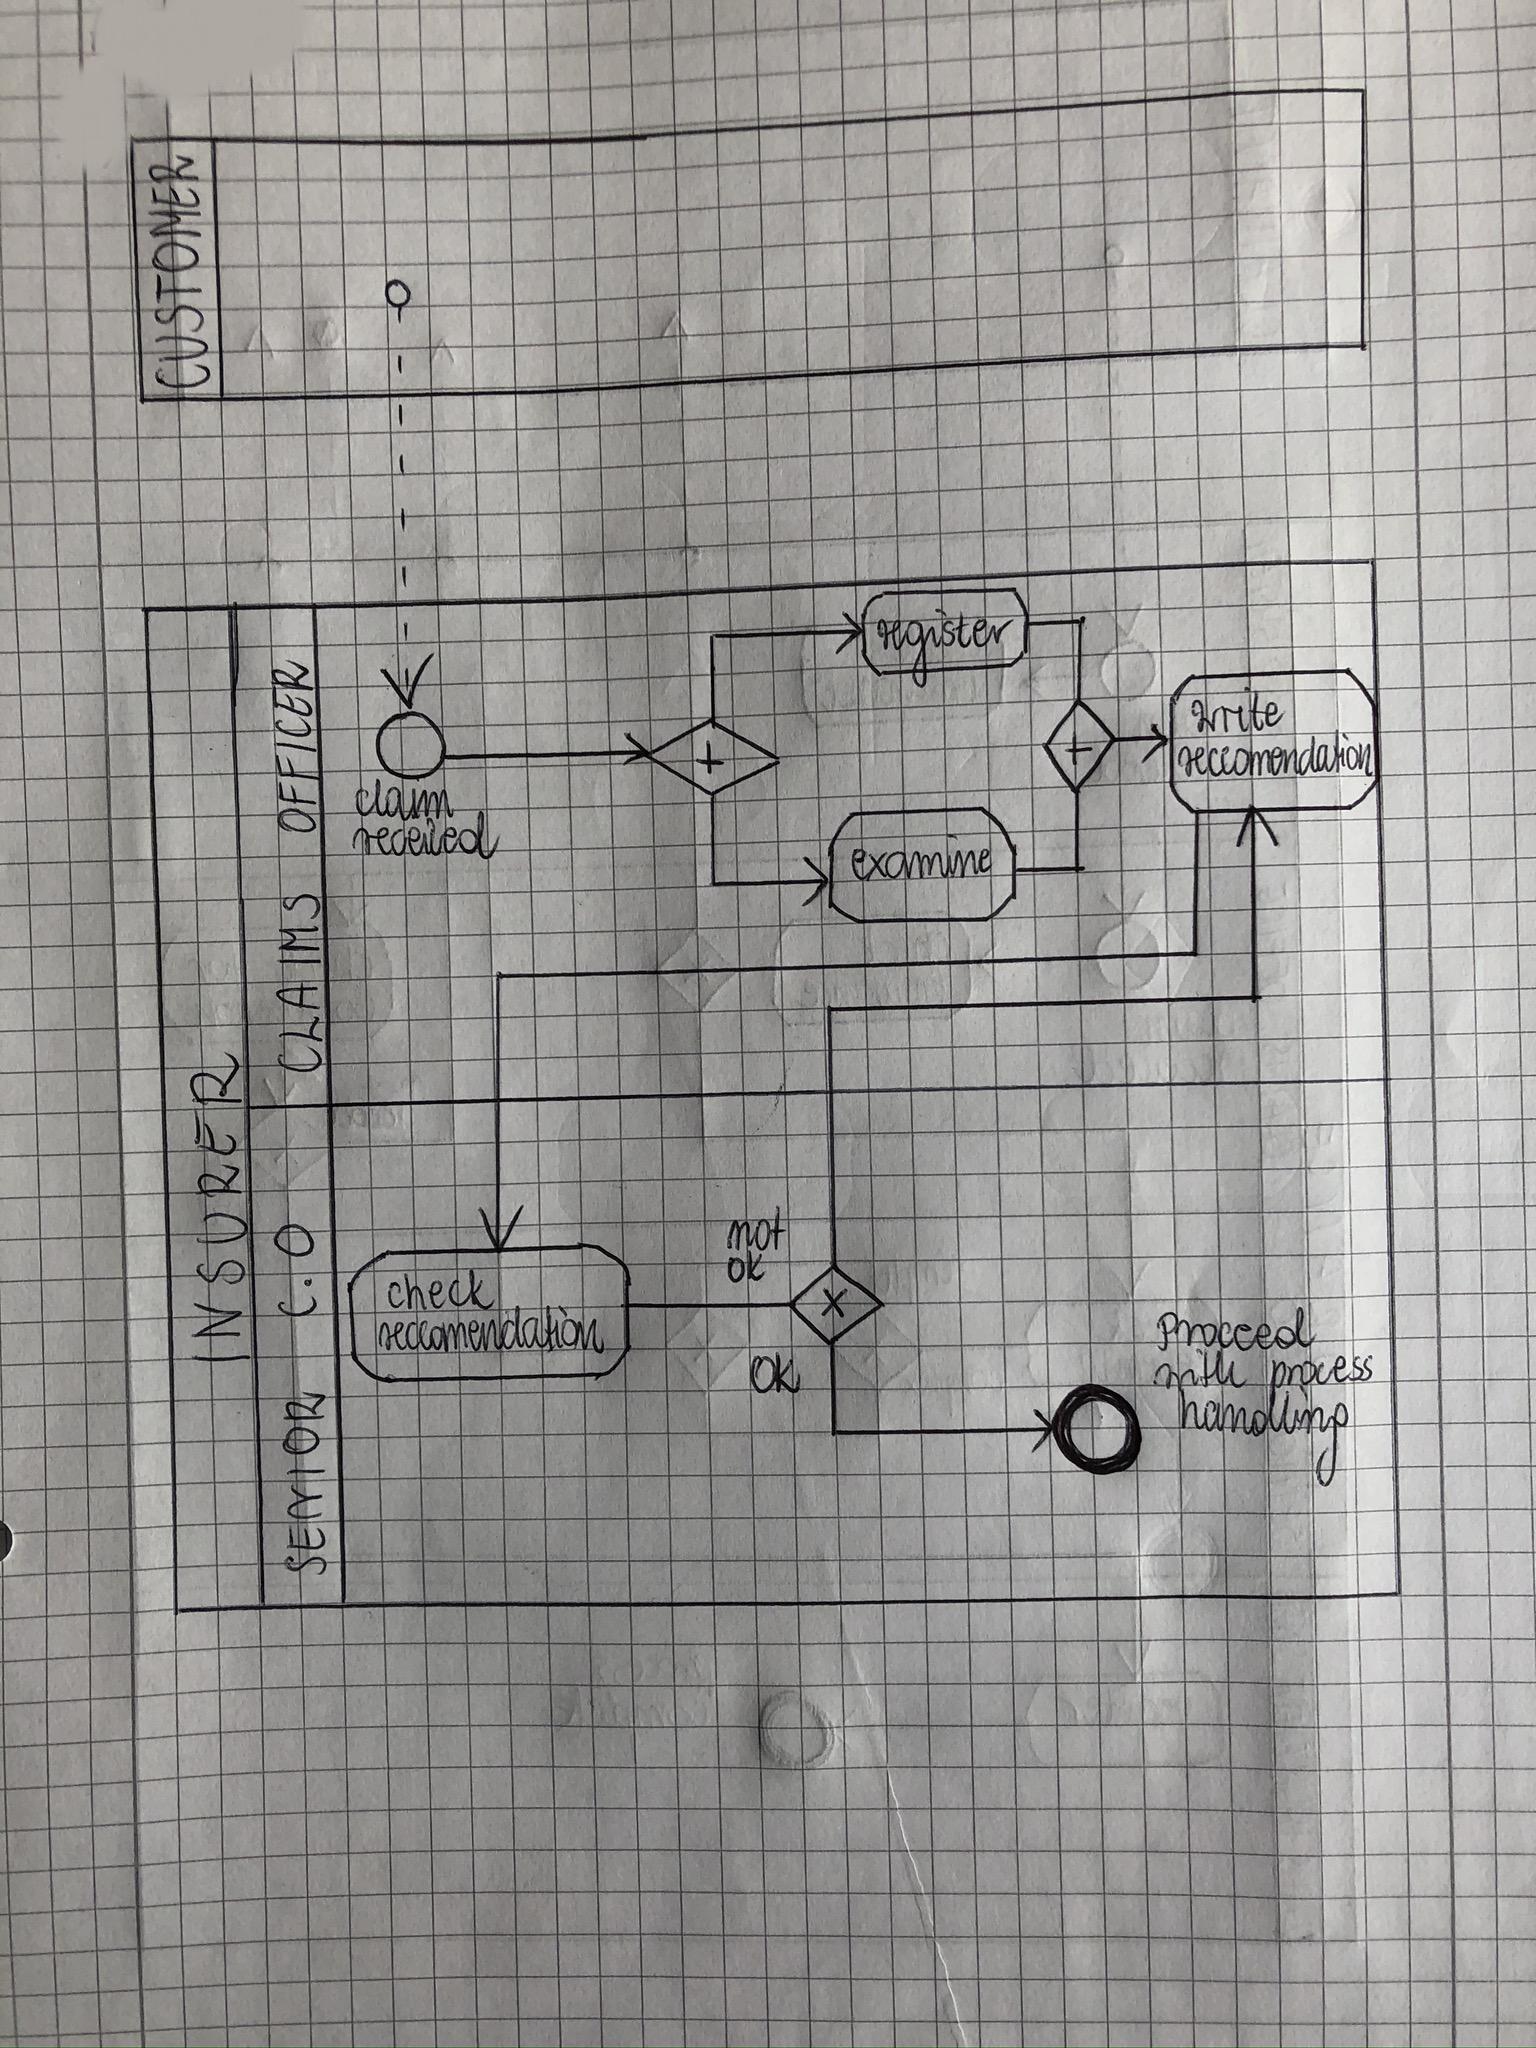 CUSTOMER
INSURER
CLAIMS OFFICER
claim
received
register
examine
write
reccomendation
SENIOR C.O
check
reccomendation
not
ok
OK
Procced
with process
handling